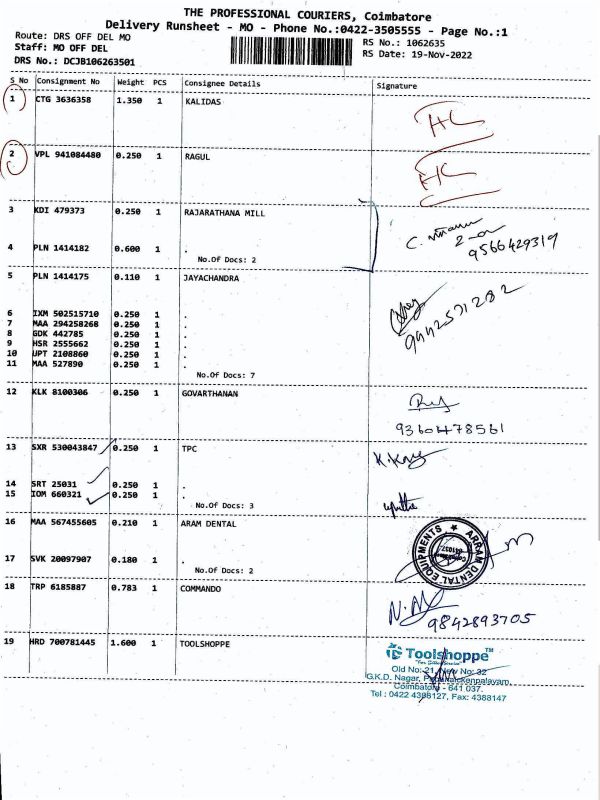 THE PROFESSIONAL COURIERS, Coimbatore
Delivery Runsheet - MO - Phone No.:0422-3505555 - Page No.:1
Route: DRS OFF DEL MO
RS No.: 1062635
Staff: MO OFF DEL
RS Date: 19-Nov-2022
DRS No.: DCJB106263501
S No Consignment No Weight PCS Consignee Details Signature
1 CTG 3636358 1.350 1 KALIDAS
HC
2 VPL 941084480 0.250 1 RAGUL
HC
3 KDI 479373 0.250 1 RAJARATHANA MILL
C.
9566429319
4 PLN 1414182 0.600 1 .
No.Of Docs: 2
5 PLN 1414175 0.110 1 JAYACHANDRA
9442571282
6 IXM 502515710 0.250 1 .
7 MAA 294258268 0.250 1 .
8 GDK 442785 0.250 1 .
9 HSR 2555662 0.250 1 .
10 UPT 2108860 0.250 1 .
11 MAA 527890 0.250 1 .
No.Of Docs: 7
12 KLK 8100306 0.250 1 GOVARTHANAN
9360478561
13 SXR 530043847 0.250 1 TPC
14 SRT 25031 0.250 1 .
15 IOM 660321 0.250 1 .
No.Of Docs: 3
16 MAA 567455605 0.210 1 ARAM DENTAL
ARRAM DENTAL EQUIPMENTS
17 SVK 20097907 0.180 1 .
No.Of Docs: 2
18 TRP 6185887 0.783 1 COMMANDO
9842893705
19 HRD 700781445 1.600 1 TOOLSHOPPE
Toolshoppe™
Old No: 21, New No: 32
G.K.D. Nagar,
Coimbatore - 641 037.
Tel : 0422 4388127, Fax: 4388147